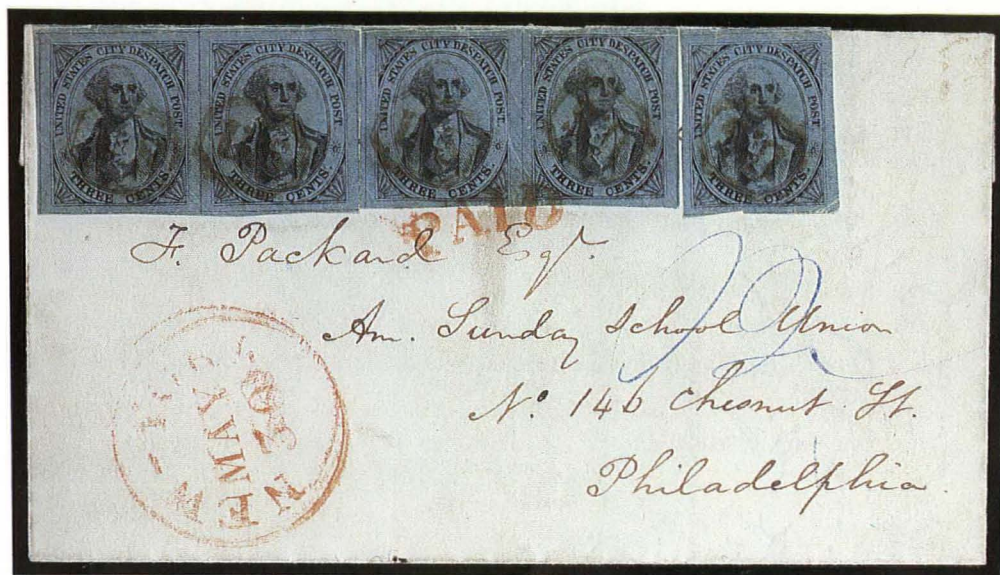 UNITED STATES CITY DESPATCH POST.
THREE CENTS.
UNITED STATES CITY DESPATCH POST.
THREE CENTS.
UNITED STATES CITY DESPATCH POST.
THREE CENTS.
UNITED STATES CITY DESPATCH POST.
THREE CENTS.
UNITED STATES CITY DESPATCH POST.
THREE CENTS.
PAID
F. Packard Esqr.
Am. Sunday School Union
No. 146 Chesnut St.
Philadelphia.
NEW
MAY